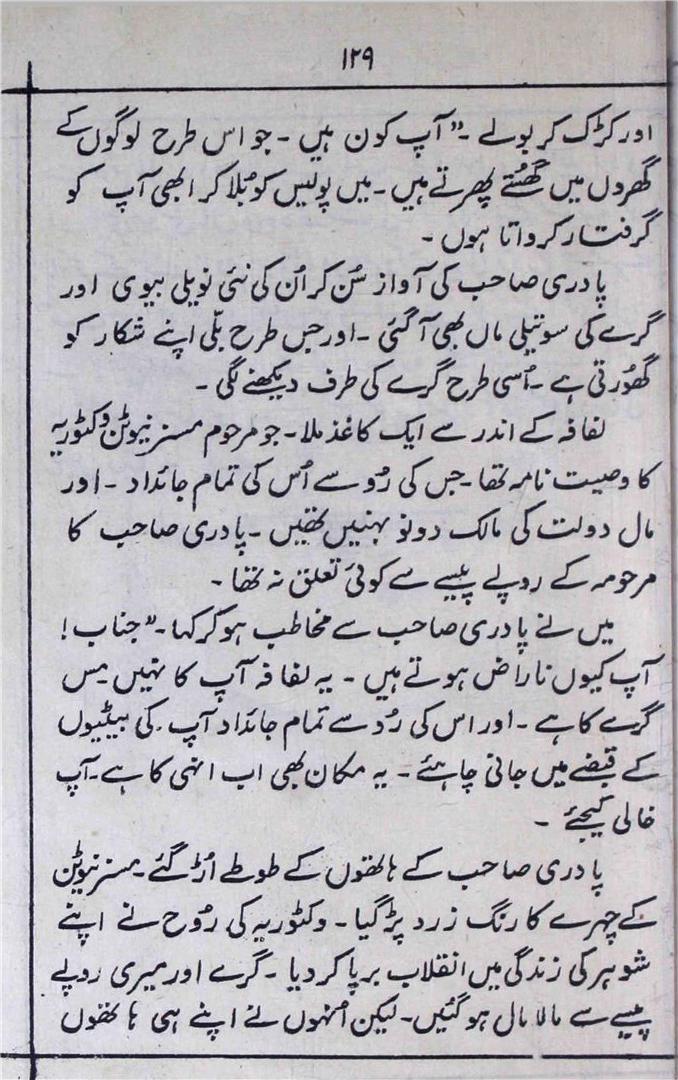 ۱۲۹
اور کڑک کر بولے ۔ " آپ کون ہیں ۔ جو اس طرح لوگوں کے
گھروں میں گھستے پھرتے ہیں ۔ میں پولیس کو بُلا کر ابھی آپ کو
گرفتار کرواتا ہوں ۔
پادری صاحب کی آواز سُن کر اُن کی نئی نویلی بیوی اور
گرے کی سوتیلی ماں بھی آ گئی ۔ اور جس طرح بلّی اپنے شکار کو
گھُورتی ہے ۔ اُسی طرح گرے کی طرف دیکھنے لگی ۔
لفافہ کے اندر سے ایک کاغذ ملا ۔ جو مرحوم مسز نیوٹن وکٹوریہ
کا وصیت نامہ تھا ۔ جس کی رُو سے اُس کی تمام جائداد ۔ اور
مال دولت کی مالک دونو بہنیں تھیں ۔ پادری صاحب کا
مرحومہ کے روپے پیسے سے کوئی تعلق نہ تھا ۔
میں نے پادری صاحب سے مخاطب ہو کر کہا ۔ " جناب !
آپ کیوں ناراض ہوتے ہیں ۔ یہ لفافہ آپ کا نہیں مس
گرے کا ہے ۔ اور اس کی رُو سے تمام جائداد آپ کی بیٹیوں
کے قبضے میں جانی چاہئے ۔ یہ مکان بھی اب انہی کا ہے ۔ آپ
خالی کیجئے ۔
پادری صاحب کے ہاتھوں کے طوطے اُڑ گئے ۔ مسز نیوٹن
کے چہرے کا رنگ زرد پڑ گیا ۔ وکٹوریہ کی رُوح نے اپنے
شوہر کی زندگی میں انقلاب برپا کر دیا ۔ گرے اور میری روپے
پیسے سے مالا مال ہو گئیں ۔ لیکن اُنہوں نے اپنے ہی ہاتھوں